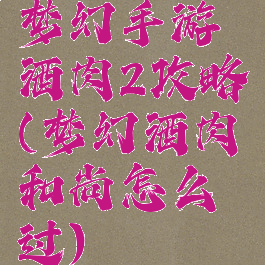 梦幻手游
酒肉2攻略
(梦幻酒肉
和尚怎么
过)